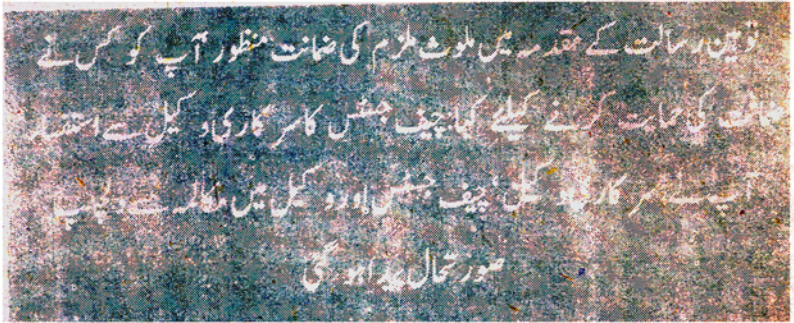 توہین رسالت کے مقدمہ میں ملوث ملزم کی ضمانت منظور آپ کو کس نے
ضمانت کی حمایت کرنے کیلئے کہا، چیف جسٹس کا سرکاری وکیل سے استفسار
آپ نے سرکاری وکیل‘ چیف جسٹس اور وکیل میں مکالمہ سے دلچسپ
صورتحال پیدا ہو گئی